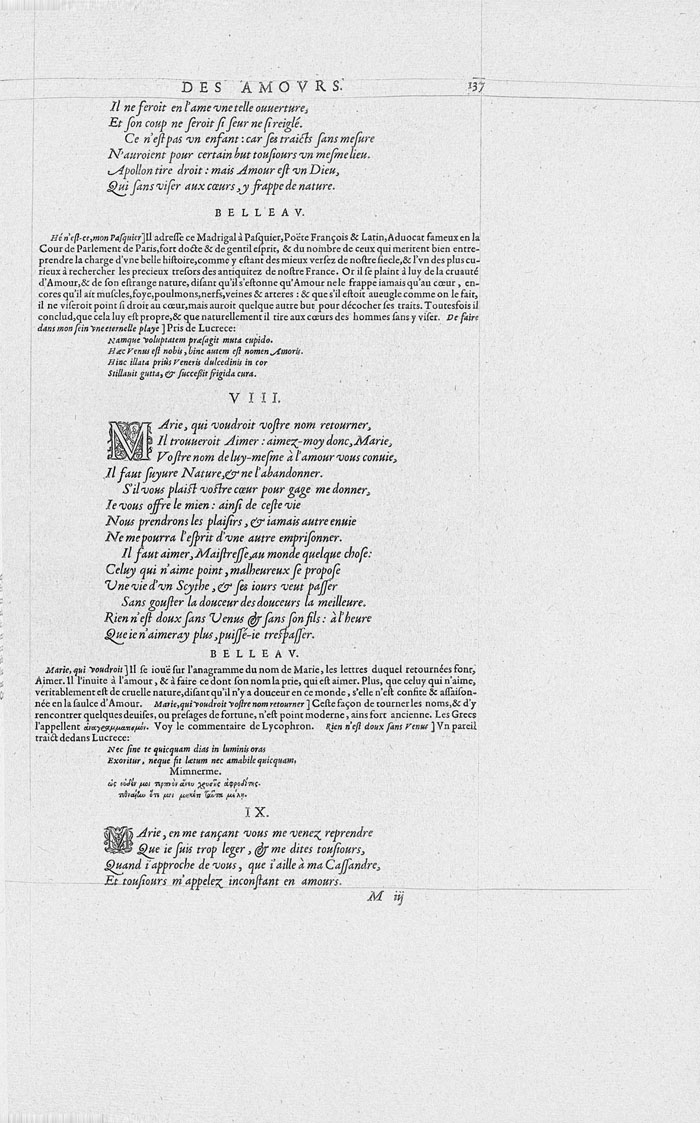 DES AMOVRS. 137
Il ne feroit en l'ame vne telle ouuerture,
Et ſon coup ne ſeroit ſi ſeur ne ſi reiglé.
Ce n'eſt pas vn enfant : car ſes traicts ſans meſure
N'auroient pour certain but touſiours vn meſme lieu.
Apollon tire droit : mais Amour eſt vn Dieu,
Qui ſans viſer aux cœurs, y frappe de nature.
BELLEAV.
Hé n'eſt-ce, mon Paſquier] Il adreſſe ce Madrigal à Paſquier, Poëte François & Latin, Aduocat fameux en la
Cour de Parlement de Paris, fort docte & de gentil eſprit, & du nombre de ceux qui meritent bien entre-
prendre la charge d'vne belle hiſtoire, comme y eſtant des mieux verſez de noſtre ſiecle, & l'vn des plus cu-
rieux à rechercher les precieux treſors des antiquitez de noſtre France. Or il ſe plaint à luy de la cruauté
d'Amour, & de ſon eſtrange nature, diſant qu'il s'eſtonne qu'Amour ne le frappe iamais qu'au cœur, en-
cores qu'il ait muſcles, foye, poulmons, nerfs, veines & arteres : & que s'il eſtoit aueugle comme on le fait,
il ne viſeroit point ſi droit au cœur, mais auroit quelque autre but pour décocher ſes traits. Toutesfois il
conclud, que cela luy eſt propre, & que naturellement il tire aux cœurs des hommes ſans y viſer. De faire
dans mon ſein vne eternelle playe] Pris de Lucrece:
Namque voluptatem præſagit muta cupido.
Hæc Venus eſt nobis, hinc autem eſt nomen Amoris.
Hinc illata priùs Veneris dulcedinis in cor
Stillauit gutta, & ſucceſſit frigida cura.
VIII.
Marie, qui voudroit voſtre nom retourner,
Il trouueroit Aimer : aimez-moy donc, Marie,
Voſtre nom de luy-meſme à l'amour vous conuie,
Il faut ſuyure Nature, & ne l'abandonner.
S'il vous plaiſt voſtre cœur pour gage me donner,
Ie vous offre le mien : ainſi de ceſte vie
Nous prendrons les plaiſirs, & iamais autre enuie
Ne me pourra l'eſprit d'vne autre empriſonner.
Il faut aimer, Maiſtreſſe, au monde quelque choſe:
Celuy qui n'aime point, malheureux ſe propoſe
Vne vie d'vn Scythe, & ſes iours veut paſſer
Sans gouſter la douceur des douceurs la meilleure.
Rien n'eſt doux ſans Venus & ſans ſon fils : à l'heure
Que ie n'aimeray plus, puiſſé-ie treſpaſſer.
BELLEAV.
Marie, qui voudroit] Il ſe iouë ſur l'anagramme du nom de Marie, les lettres duquel retournées font,
Aimer. Il l'inuite à l'amour, & à faire ce dont ſon nom la prie, qui eſt aimer. Plus, que celuy qui n'aime,
veritablement eſt de cruelle nature, diſant qu'il n'y a douceur en ce monde, s'elle n'eſt confite & aſſaiſon-
née en la ſaulce d'Amour. Marie, qui voudroit voſtre nom retourner] Ceſte façon de tourner les noms, & d'y
rencontrer quelques deuiſes, ou preſages de fortune, n'eſt point moderne, ains fort ancienne. Les Grecs
l'appellent Voy le commentaire de Lycophron. Rien n'eſt doux ſans Venus] Vn pareil
traict dedans Lucrece:
Nec ſine te quicquam dias in luminis oras
Exoritur, neque fit lætum nec amabile quicquam,
Mimnerme.
IX.
Marie, en me tançant vous me venez reprendre
Que ie ſuis trop leger, & me dites touſiours,
Quand i'approche de vous, que i'aille à ma Caſſandre,
Et touſiours m'appelez inconſtant en amours.
M iij